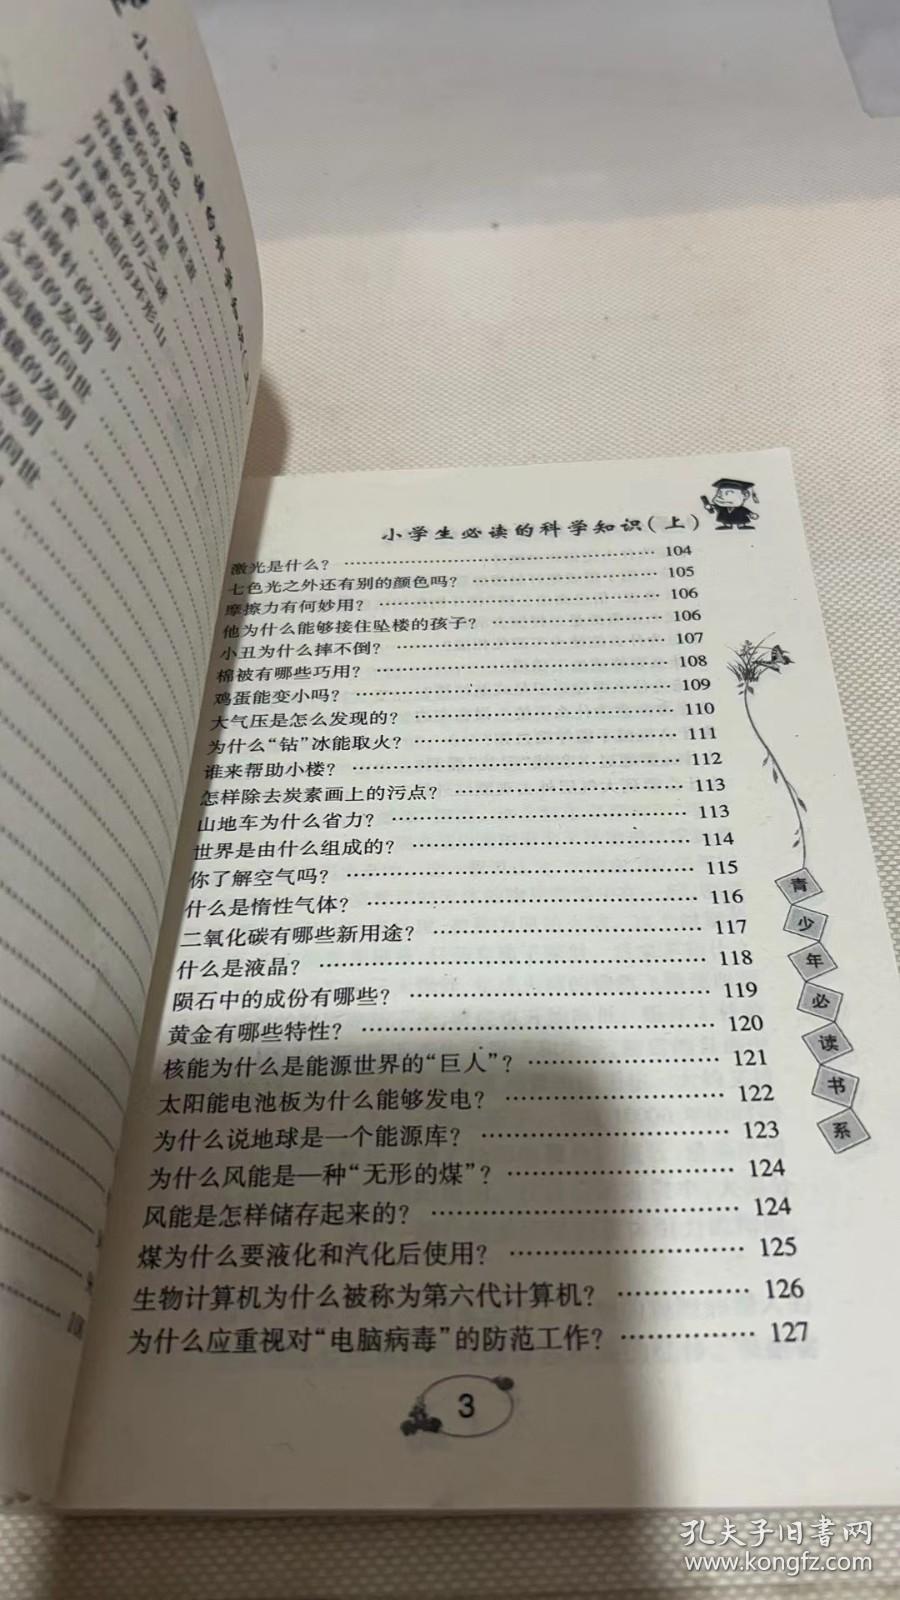 小学生必读的科学知识(上)
彗星的传说
神秘的哈雷彗星蛋
月球的来历之谜
月球表面的环形山
月食
指南针的发明
火药的发明
望远镜的问世
小学生必读的科学知识(上)
激光是什么? 104
七色光之外还有别的颜色吗? 105
摩擦力有何妙用? 106
他为什么能够接住坠楼的孩子? 106
小丑为什么摔不倒? 107
棉被有哪些巧用? 108
鸡蛋能变小吗? 109
大气压是怎么发现的? 110
为什么“钻”冰能取火? 111
谁来帮助小楼? 112
怎样除去炭素画上的污点? 113
山地车为什么省力? 113
世界是由什么组成的? 114
你了解空气吗? 115
什么是惰性气体? 116
二氧化碳有哪些新用途? 117
什么是液晶? 118
陨石中的成份有哪些? 119
黄金有哪些特性? 120
核能为什么是能源世界的“巨人”? 121
太阳能电池板为什么能够发电? 122
为什么说地球是一个能源库? 123
为什么风能是一种“无形的煤”? 124
风能是怎样储存起来的? 124
煤为什么要液化和汽化后使用? 125
生物计算机为什么被称为第六代计算机? 126
为什么应重视对“电脑病毒”的防范工作? 127
3
青少年必读书系
孔夫子旧书网
www.kongfz.com